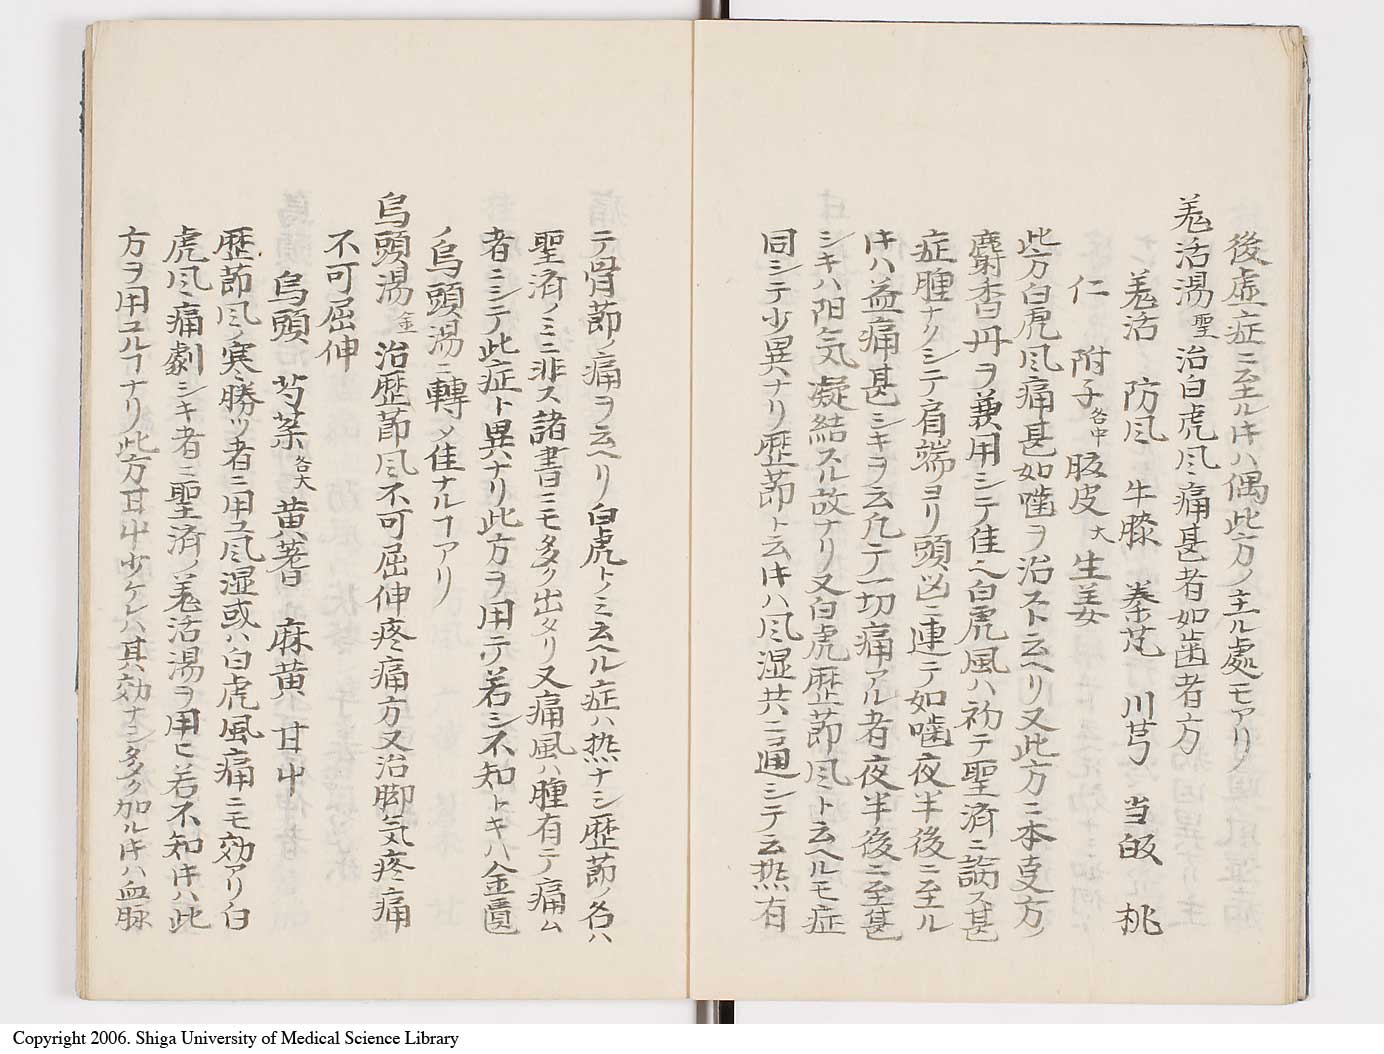 後虚症ニ至ルキハ偶此方ノ主ル處モアリ
羌活湯聖治白虎風痛甚者如歯者方
羌活 防風 牛膝 秦芃 川芎 当皈 桃
仁 附子各中 胲皮大 生姜
此方白虎風痛甚如噛ヲ治スト云ヘリ又此方ニ本麦方ノ
麝香丹ヲ兼用シテ佳之白虎風ハ初テ聖済ニ論ス甚
症腫ナクシテ肩端ヨリ頭凶ニ連テ如噛夜半後ニ至ル
キハ益痛甚シキヲ云凡テ一切痛アル者夜半後ニ至甚
シキハ阳気凝結スル故ナリ又白虎歴節風ト云ヘルモ症
同シテ少異ナリ歴節ト云キハ風湿共ニ通シテ云熱有
テ骨節ノ痛ヲ云ヘリ白虎トノミ云ヘル症ハ热ナシ歴節ノ名ハ
聖済ノミニ非ス諸書ニモ多ク出タリ又痛風ハ腫有テ痛ム
者ニシテ此症ト異ナリ此方ヲ用テ若シ不知トキハ金匱
ノ烏頭湯ニ轉メ佳ナルヿアリ
烏頭湯金 治歴節風不可屈伸疼痛方又治脚気疼痛
不可屈伸
烏頭 芍薬各大 黄蓍 麻黄 甘中
歴節風ノ寒勝ツ者ニ用ユ風湿或ハ白虎風痛ニモ効アリ白
虎風痛劇シキ者ニ聖済ノ羌活湯ヲ用ヒ若不知キハ此
方ヲ用ユルヿナリ此方甘中少ケレハ其効ナシ多ク加ルキハ血脉
Copyright 2006. Shiga University of Medical Science Library